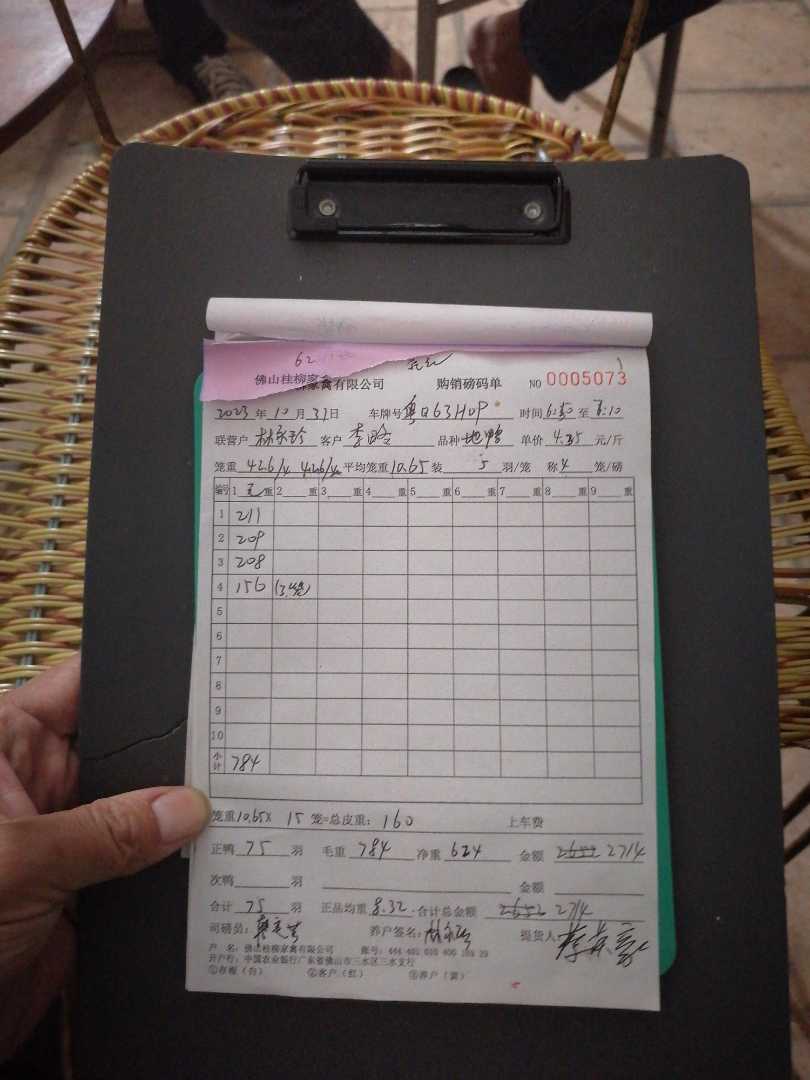 62
佛山桂柳家禽有限公司 购销磅码单 NO 0005073
2023年10月31日 车牌号 粤Q63H09 时间 6:50 至 8:10
联营户 客户 品种 地鸭 单价 4.35 元/斤
笼重 42.6/4 42.6/4 平均笼重 10.65 装 5 羽/笼 称 4 笼/磅
编号 1 毛重 2 重 3 重 4 重 5 重 6 重 7 重 8 重 9 重
1 211
2 209
3 208
4 156 (3笼)
5
6
7
8
9
10
小计 784
笼重 10.65X 15 笼=总皮重: 160 上车费
正鸭 75 羽 毛重 784 净重 624 金额 2652 2714
次鸭 羽 金额
合计 75 羽 正品均重 8.32 合计总金额 2652 2714
司磅员: 养户签名: 提货人:
户 名: 佛山桂柳家禽有限公司 账号:
开户行: 中国农业银行广东省佛山市三水区三水支行
①存根(白) ②客户(红) ③养户(黄)